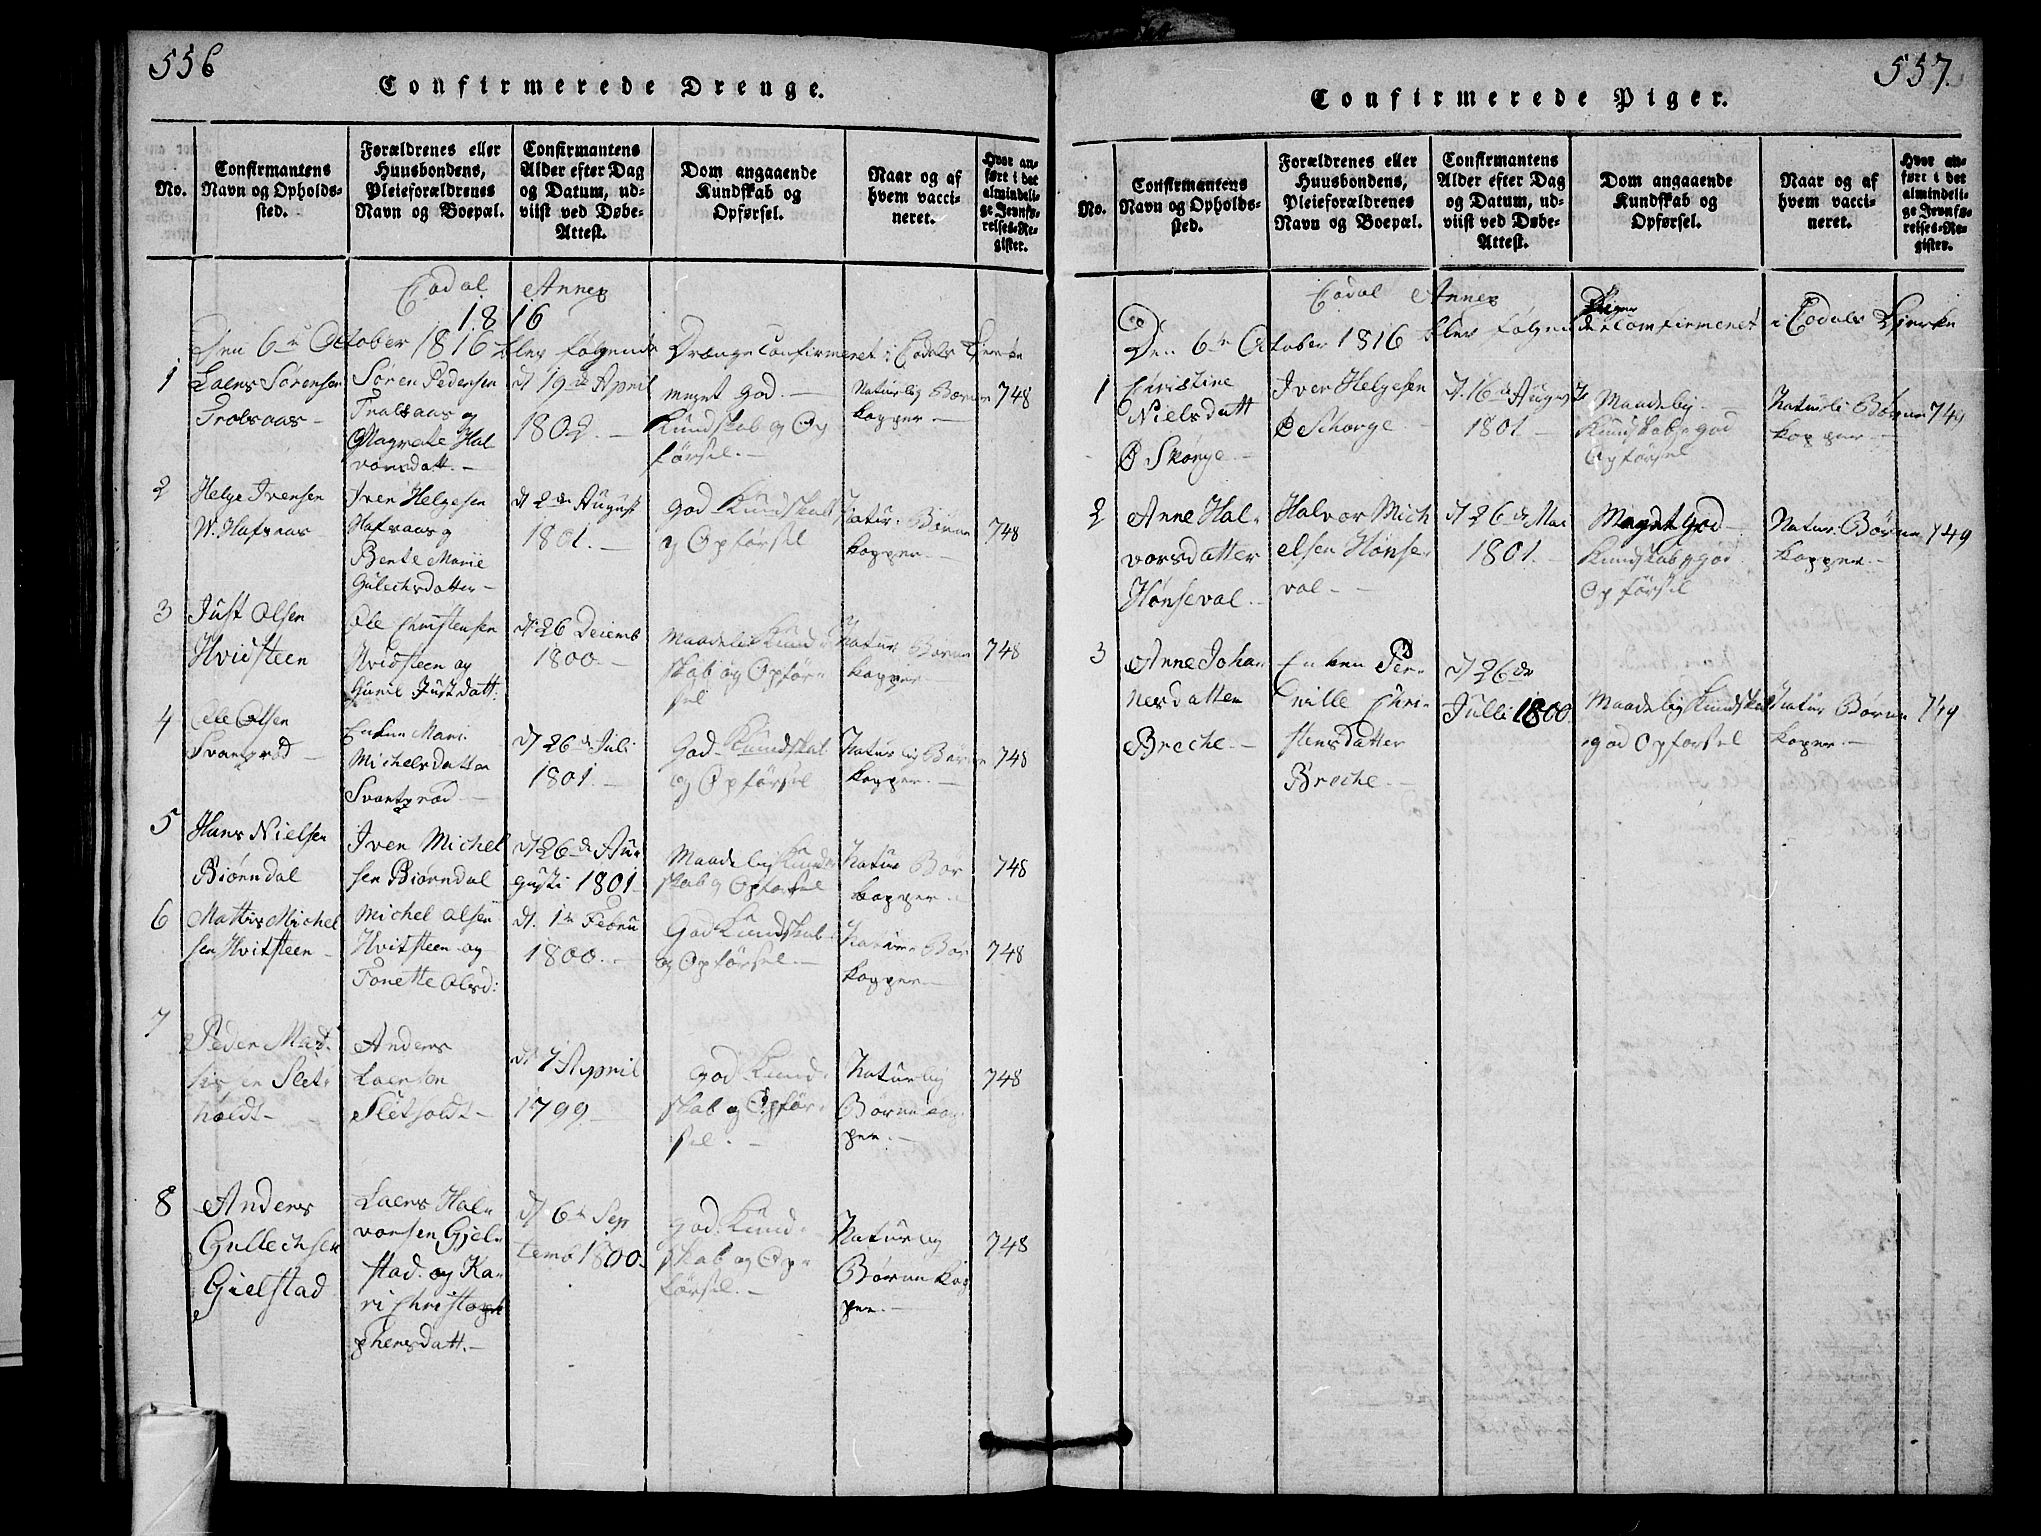 556
Confirmerede Drenge.
No.
Confirmantens
Navn og Opholds-
sted.
Forældrenes eller
Huusbondens,
Pleieforældrenes
Navn og Boepæl.
Confirmantens
Alder efter Dag
og Datum, ud-
viist ved Døbe-
Attest.
Dom angaaende
Kundskab og
Opførsel.
Naar og af
hvem vacci-
neret.
Hvor an-
ført i det
almindeli-
ge Jevnfø-
relses-Re-
gister.
Eodal Annex
1816
Den 6te October 1816 blev følgende Drænge Confirmeret i Eodals
1
Laers Sørensen
Trolsaas
Søren Pedersen
Tralsaas og
Magrete Hal
vorsdatt.
d 19de April
1802.
meget God
Kundskab og Op
førsel.
Naturlig Børne
kopper
748
2
Helge Iversen
W. Hafsaas
Iver Helgesen
Hafsaas og
Bente Marie
Gulechsdatter
d 2de August
1801.
God Kundskab
og Opførsel
Natur. Børne
kopper.
748
3
Just Olsen
Hvidsteen
Ole Christensen
Hvidsteen og
Justdatt:
d 26 Decemb
1800
Maadelig Kund
skab og Opfør-
sel
Natur. Børne
kopper
748
4
Ole Olsen
Enken Mari
Michelsdatter
d 26de Juli
1801.
God Kundskab
og Opførsel
Naturlig Børne
kopper.
748
5
Hans Nielsen
Biørndal
Iver Michel
sen Biørndal
d 26de Au-
gusti 1801
Maadelig Kund
skab og Opførsel
Natur Bør
kopper.
748
6
Mattis Michel
sen Hvitsteen
Michel Olsen
Hvitsteen og
Tonette Olsd:
d. 1te Febru
1800.
God Kundskab
og Opførsel.
Natur. Bør
kopper
748
7
Peder Mad-
Slet-
holdt
Anders
Laersen
Sletholdt
d 7 April
1799.
God Kund-
skab og Opfør-
sel.
Naturlig
Børne kop
per.
748
8
Anders
Gullechsen
Gielstad
Laers Hal-
vorsen Gjel-
stad og Ka-
ri Christo
phersdatt.
d 6te Sep
temb 1800.
God Kund-
skab og Op-
førsel.
Naturlig
Børne kop
per.
748
557.
Confirmerede Piger.
No.
Confirmantens
Navn og Opholds-
sted.
Forældrenes eller
Huusbondens,
Pleieforældrenes
Navn og Boepæl.
Confirmantens
Alder efter Dag
og Datum, ud-
viist ved Døbe-
Attest.
Dom angaaende
Kundskab og
Opførsel.
Naar og af
hvem vacci-
neret.
Hvor an-
ført i det
almindeli-
ge Jevnfø-
relses-Re-
gister.
Eodal Annex
Piger
Den 6te October 1816 blev følgende Confirmeret i Eodals
1
Christine
Nielsdatt
Iver Helgesen
d. 16de August
1801
Maadelig
Kundskab god
Opførsel
Naturli Børne
kopper
749
2
Anne Hal-
vorsdatter
Hønseval
Halvor Mich
elsen Hønse-
val
d 26de Mai
1801.
Meget God
Kundskab god
Opførsel
Natur. Børne
kopper.
749
3
Anne Joha-
nesdatter
Breche
Enken Per-
nille Chri-
stensdatter
Breche.
d 26de
Julli 1800.
Maadelig Kundskab
god Opførsel
Natur Børne
koper.
749